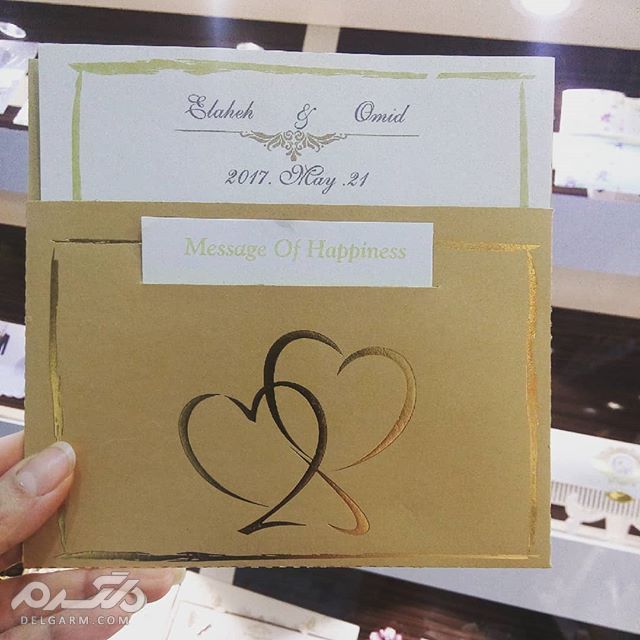 Elaheh & Omid
2017. May .21
Message Of Happiness
دلگرم
DELGARM.COM